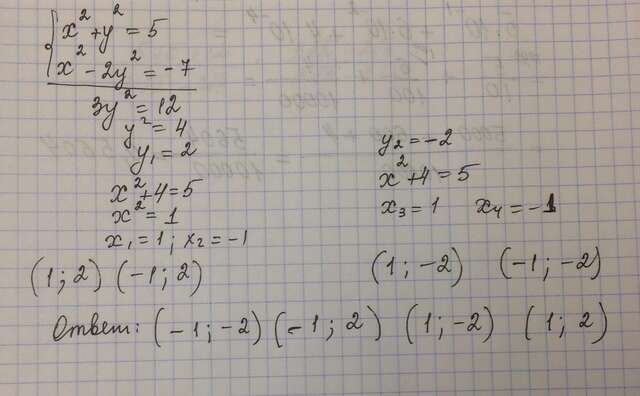 x² + y² = 5
x² - 2y² = -7
3y² = 12
y² = 4
y₁ = 2
x² + 4 = 5
x² = 1
x₁ = 1 ; x₂ = -1
(1 ; 2) (-1 ; 2)
y₂ = -2
x² + 4 = 5
x₃ = 1 x₄ = -1
(1 ; -2) (-1 ; -2)
Ответ: (-1 ; -2) (-1 ; 2) (1 ; -2) (1 ; 2)